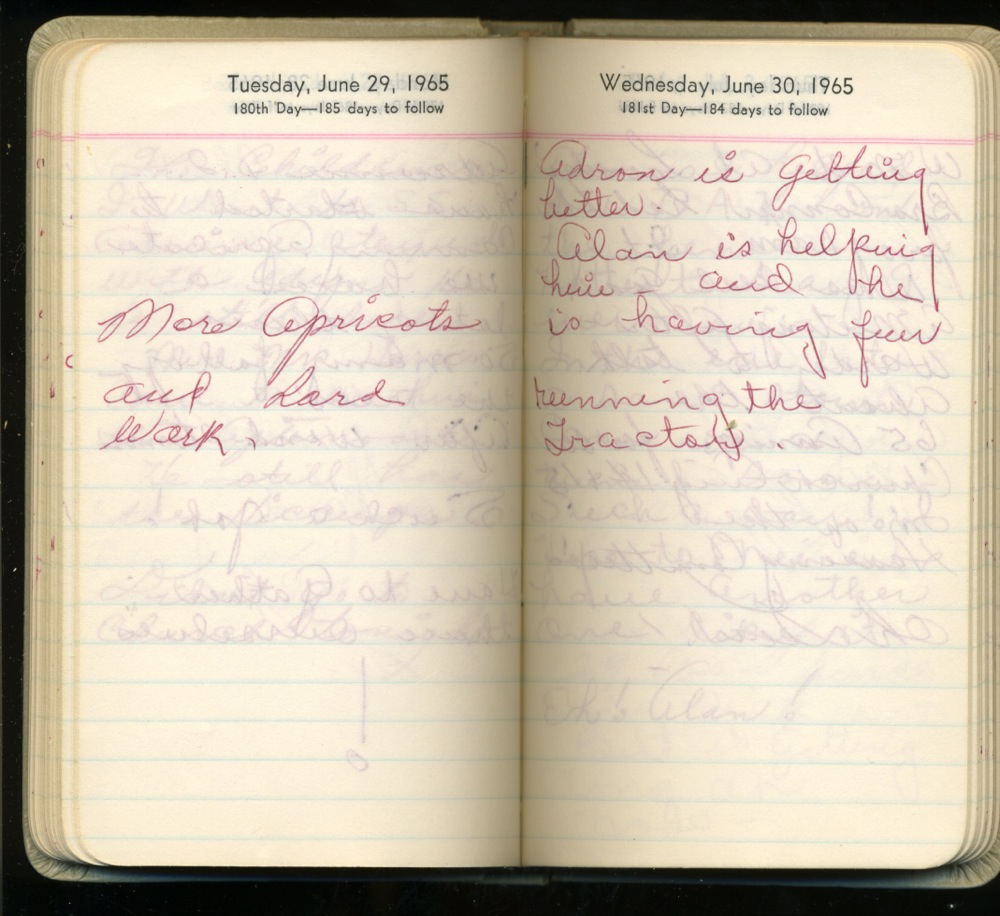 Tuesday, June 29, 1965
180th Day—185 days to follow
More Apricots
and hard
Work.
Wednesday, June 30, 1965
181st Day—184 days to follow
Adron is getting
better.
Alan is helping
him - and he
is having fun
running the
Tractor.